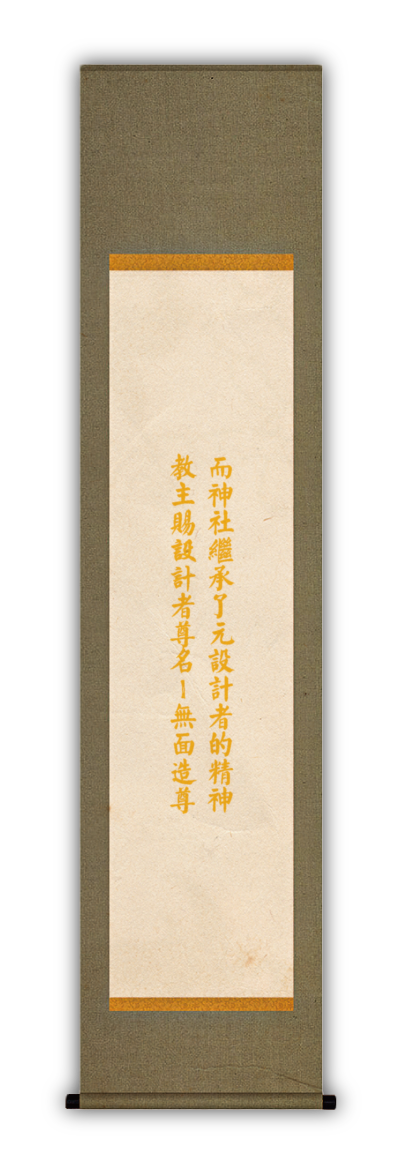 而神社繼承了元設計者的精神
教主賜設計者尊名－無面造尊